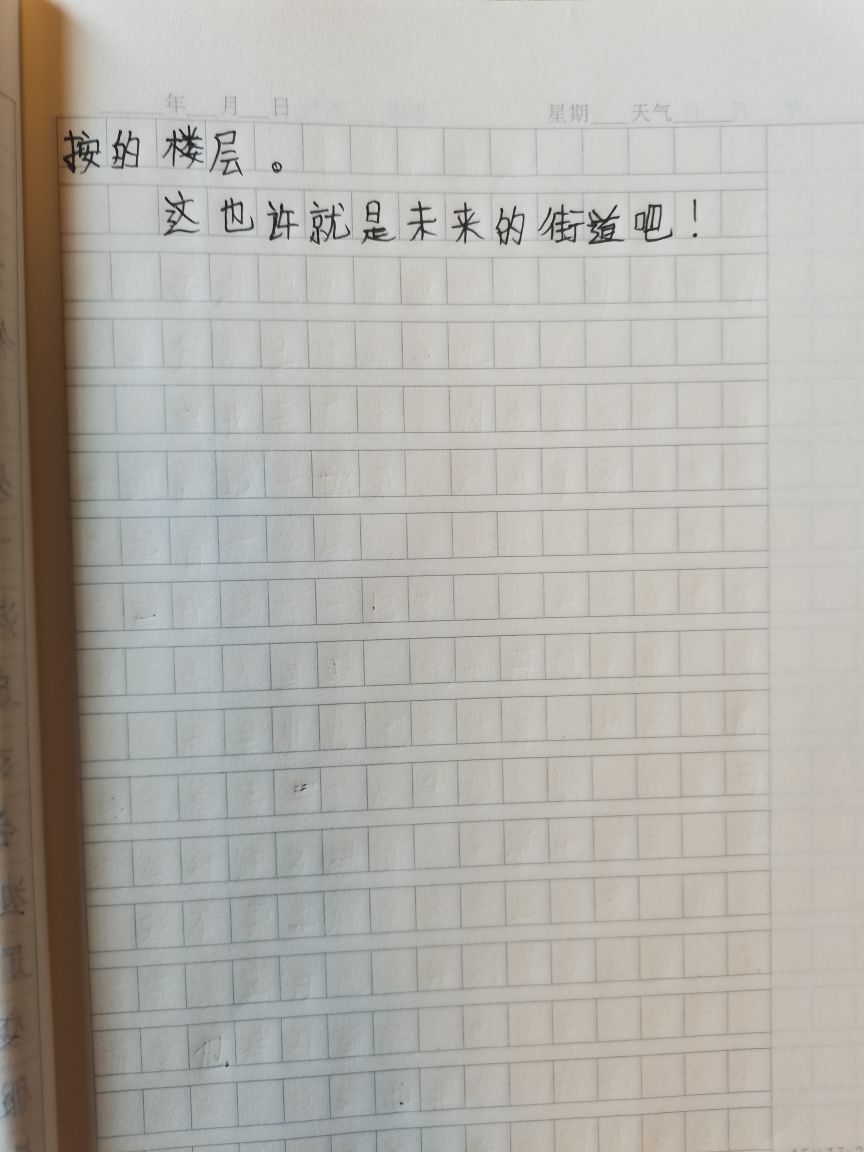 年 月 日 星期 天气
按的楼层。
这也许就是未来的街道吧！